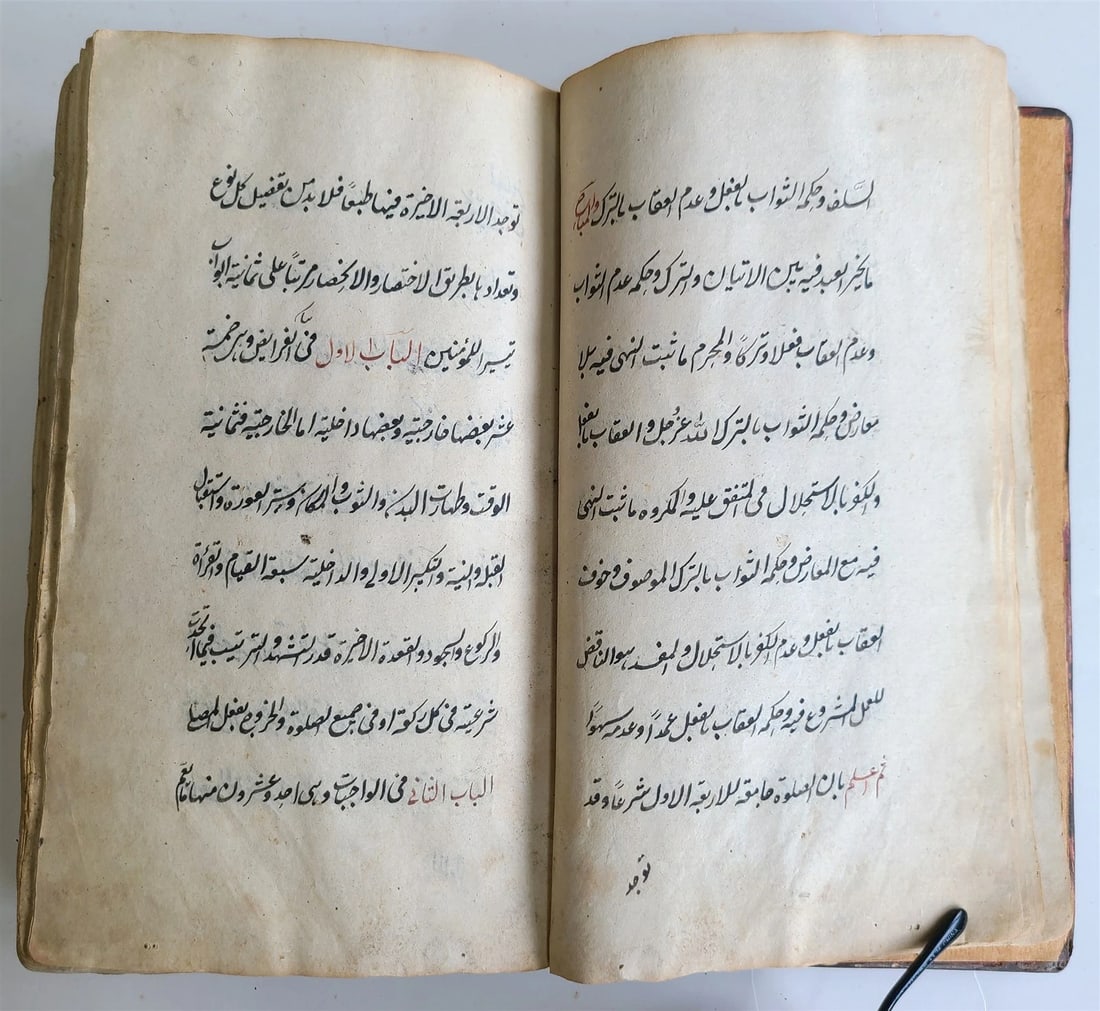 السلف وحكمه الثواب بالفعل وعدم العقاب بالترك والمباح
ما يخير العبد فيه بين الاتيان والترك وحكمه عدم الثواب
وعدم العقاب فعلا وتركاً والمحرم ما ثبت النهى فيه بلا
معارض وحكمه الثواب بالترك لله عزّ وجل والعقاب بالفعل
والكفر بالاستحلال فى المتفق عليه والمكروه ما ثبت النهى
فيه مع المعارض وحكمه الثواب بالترك الموصوف وخوف
العقاب بالفعل وعدم الكفر بالاستحلال والمفسد هو الناقض
للعمل المشروع فيه وحكمه العقاب بالفعل عمداً وعدمه سهواً
ثم اعلم بان الصلوة جامعة للاربعة الاول شرعاً وقد
توجد
توجد الاربعة الاخيرة فيها طبعاً فلا بد من تفصيل كل نوع
وتعدادها بالطريق الاختصار والانحصار مرتباً على ثمانية ابواب
تيسيرا للمؤمنين الباب الاول فى الفرايض وهى خمسة
عشر بعضها خارجية وبعضها داخلية اما الخارجية فثمانية
الوقت وطهارت البدن والثوب والمكان وستر العورة واستقبال
القبلة والنية والتكبير الاولى والداخلية سبعة القيام والقرأة
والركوع والسجود والقعدة الاخيرة قدر التشهد والترتيب فيما اتحدت
شرعيته فى كل ركعة او فى جميع الصلوة والخروج بفعل المصلى
الباب الثانى فى الواجبات وهى احد وعشرون منها ما يعم